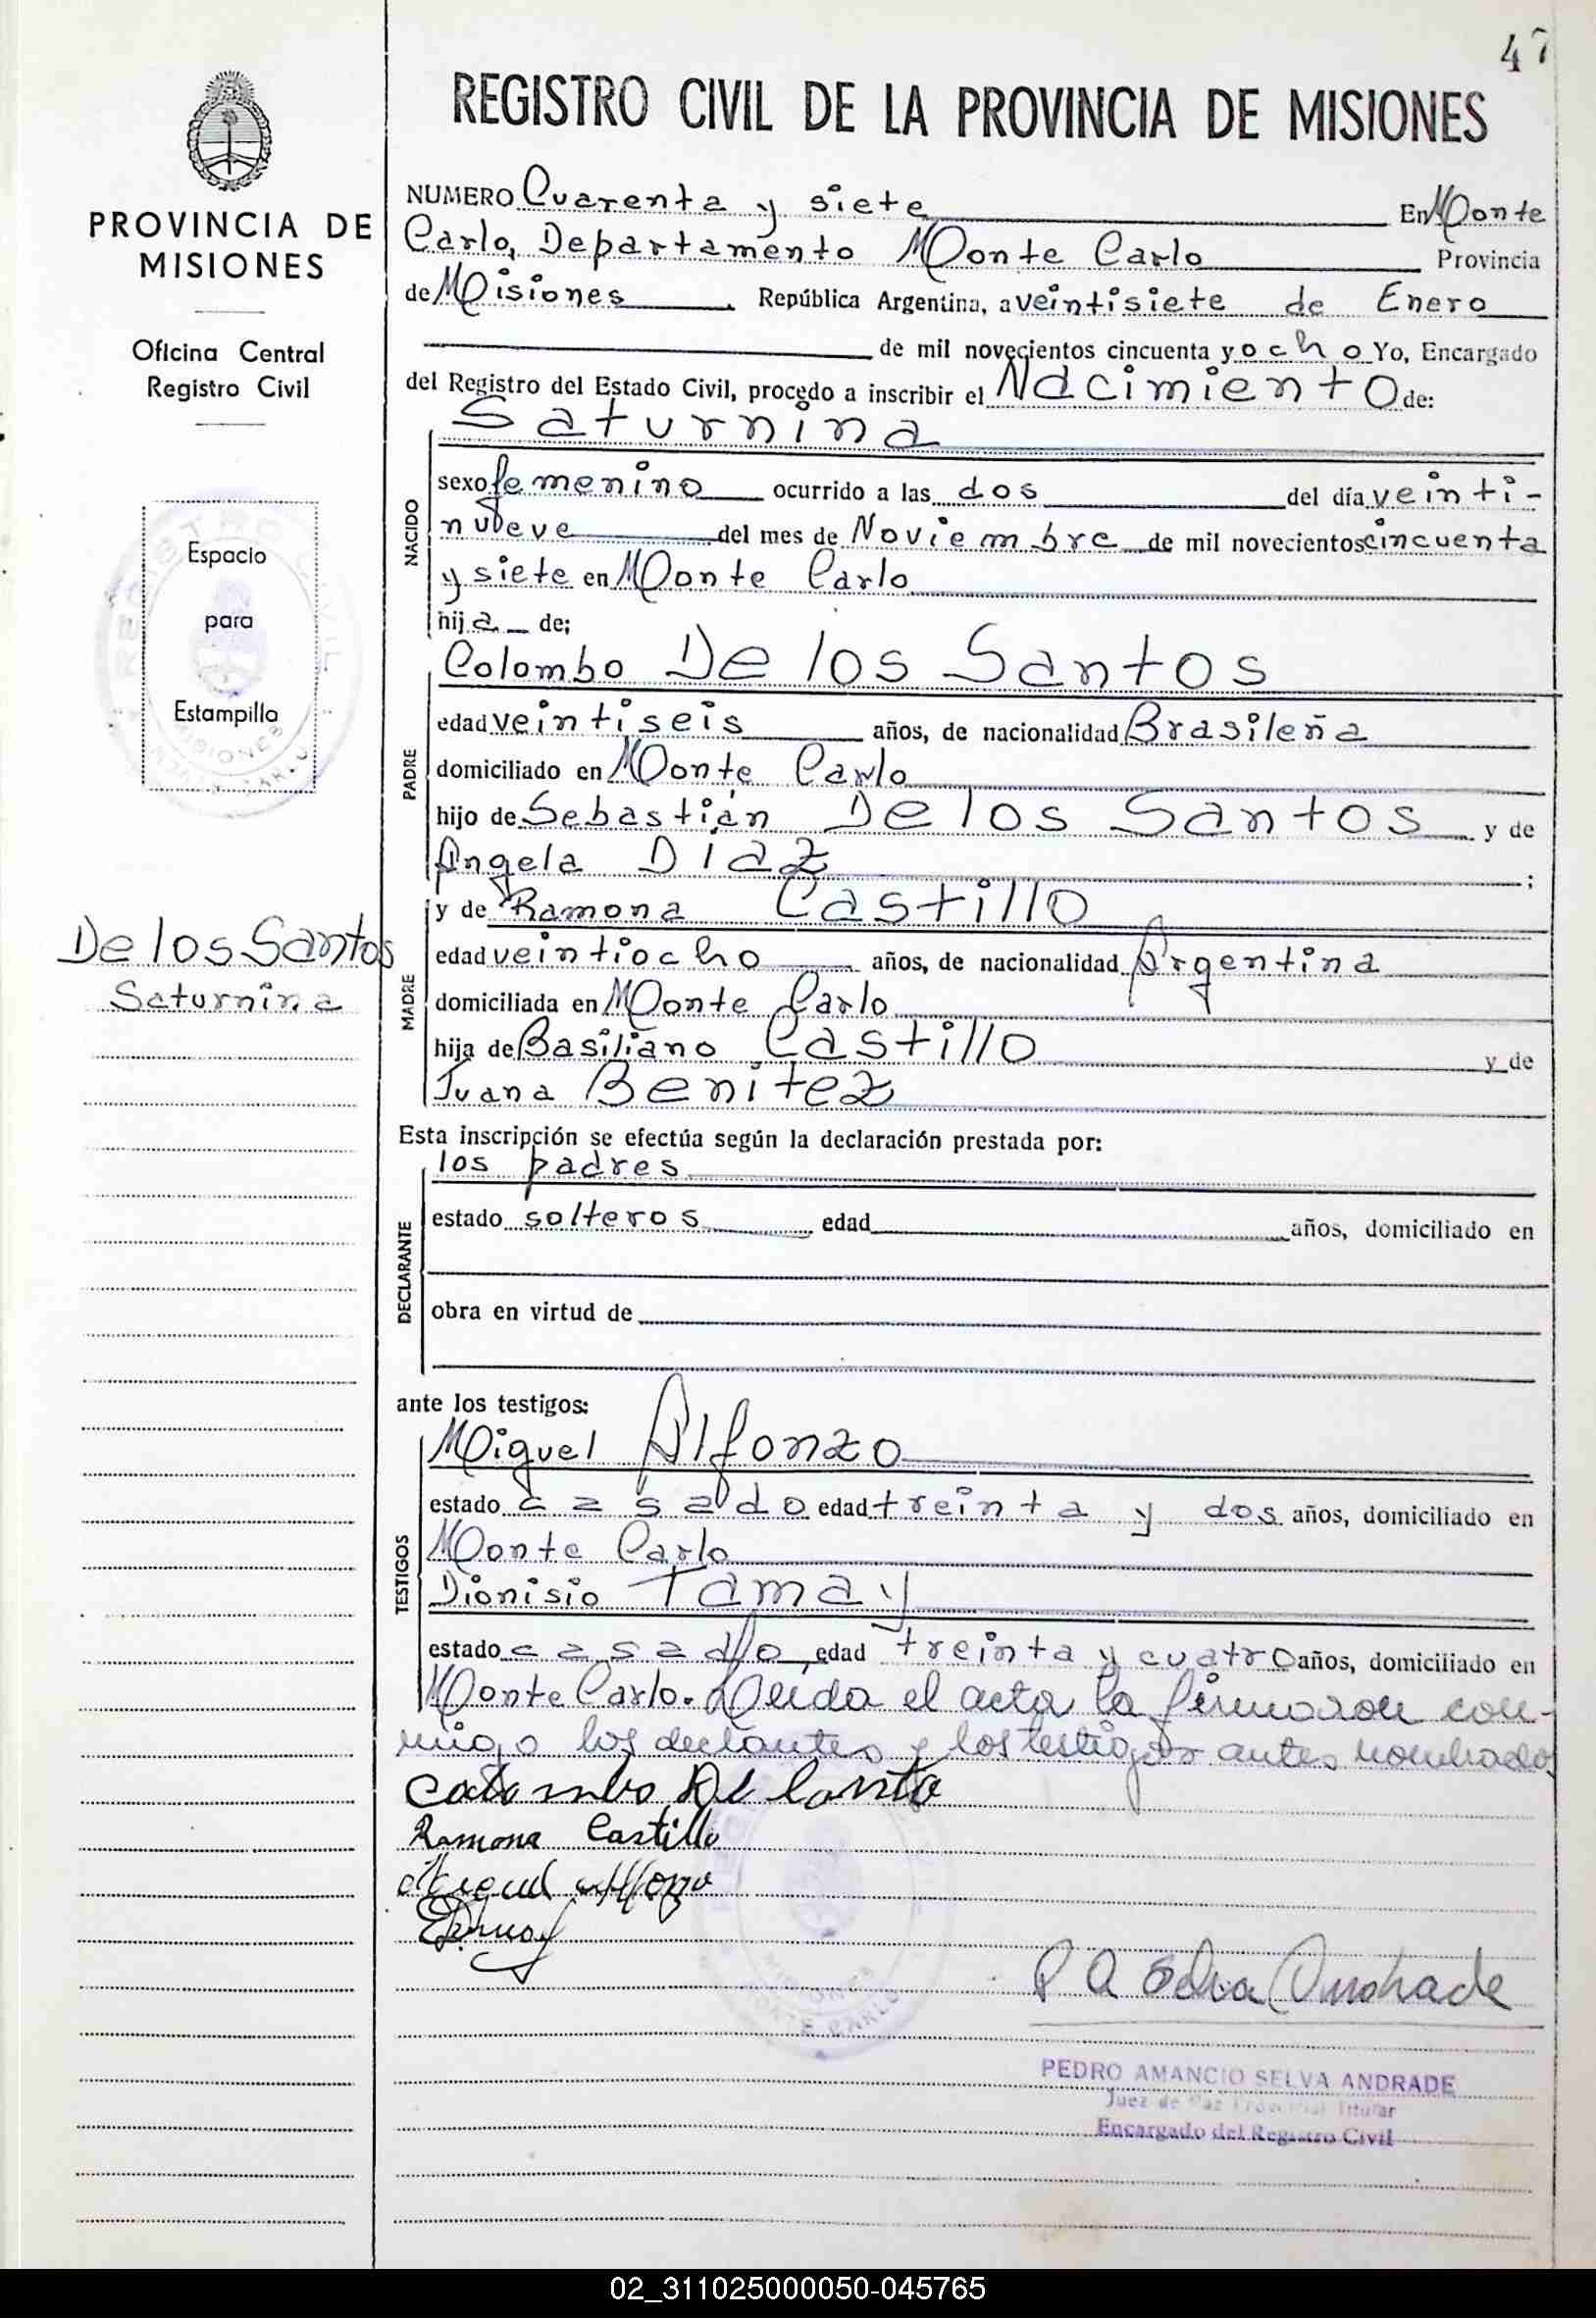 47
REGISTRO CIVIL DE LA PROVINCIA DE MISIONES
PROVINCIA DE
MISIONES
Oficina Central
Registro Civil
Espacio
para
Estampilla
De los Santos
Saturnina
NUMERO Cuarenta y siete En Monte
Carlo, Departamento Monte Carlo Provincia
de Misiones, República Argentina, a veintisiete de Enero
de mil novecientos cincuenta y ocho Yo, Encargado
del Registro del Estado Civil, procedo a inscribir el Nacimiento de:
Saturnina
NACIDO
sexo femenino ocurrido a las dos del día veinti-
nueve del mes de Noviembre de mil novecientos cincuenta
y siete en Monte Carlo
hija de;
PADRE
Colombo De los Santos
edad veintiseis años, de nacionalidad Brasileña
domiciliado en Monte Carlo
hijo de Sebastián De los Santos y de
Angela Díaz ;
MADRE
y de Ramona Castillo
edad veintiocho años, de nacionalidad Argentina
domiciliada en Monte Carlo
hija de Basiliano Castillo y de
Juana Benitez
Esta inscripción se efectúa según la declaración prestada por:
DECLARANTE
los padres
estado solteros, edad años, domiciliado en
obra en virtud de
ante los testigos:
TESTIGOS
Miguel Alfonzo
estado casado edad treinta y dos años, domiciliado en
Monte Carlo
Dionisio Tamay
estado casado, edad treinta y cuatro años, domiciliado en
Monte Carlo. Leida el acta la firmaron con-
migo los declantes y los testigos antes nombrados
Colombo De
Ramona Castillo
Miguel Alfonzo
P A Selva Andrade
PEDRO AMANCIO SELVA ANDRADE
Juez de Paz Provincial Titular
Encargado del Registro Civil
MISIONES
MONTE CARLO
02_311025000050-045765